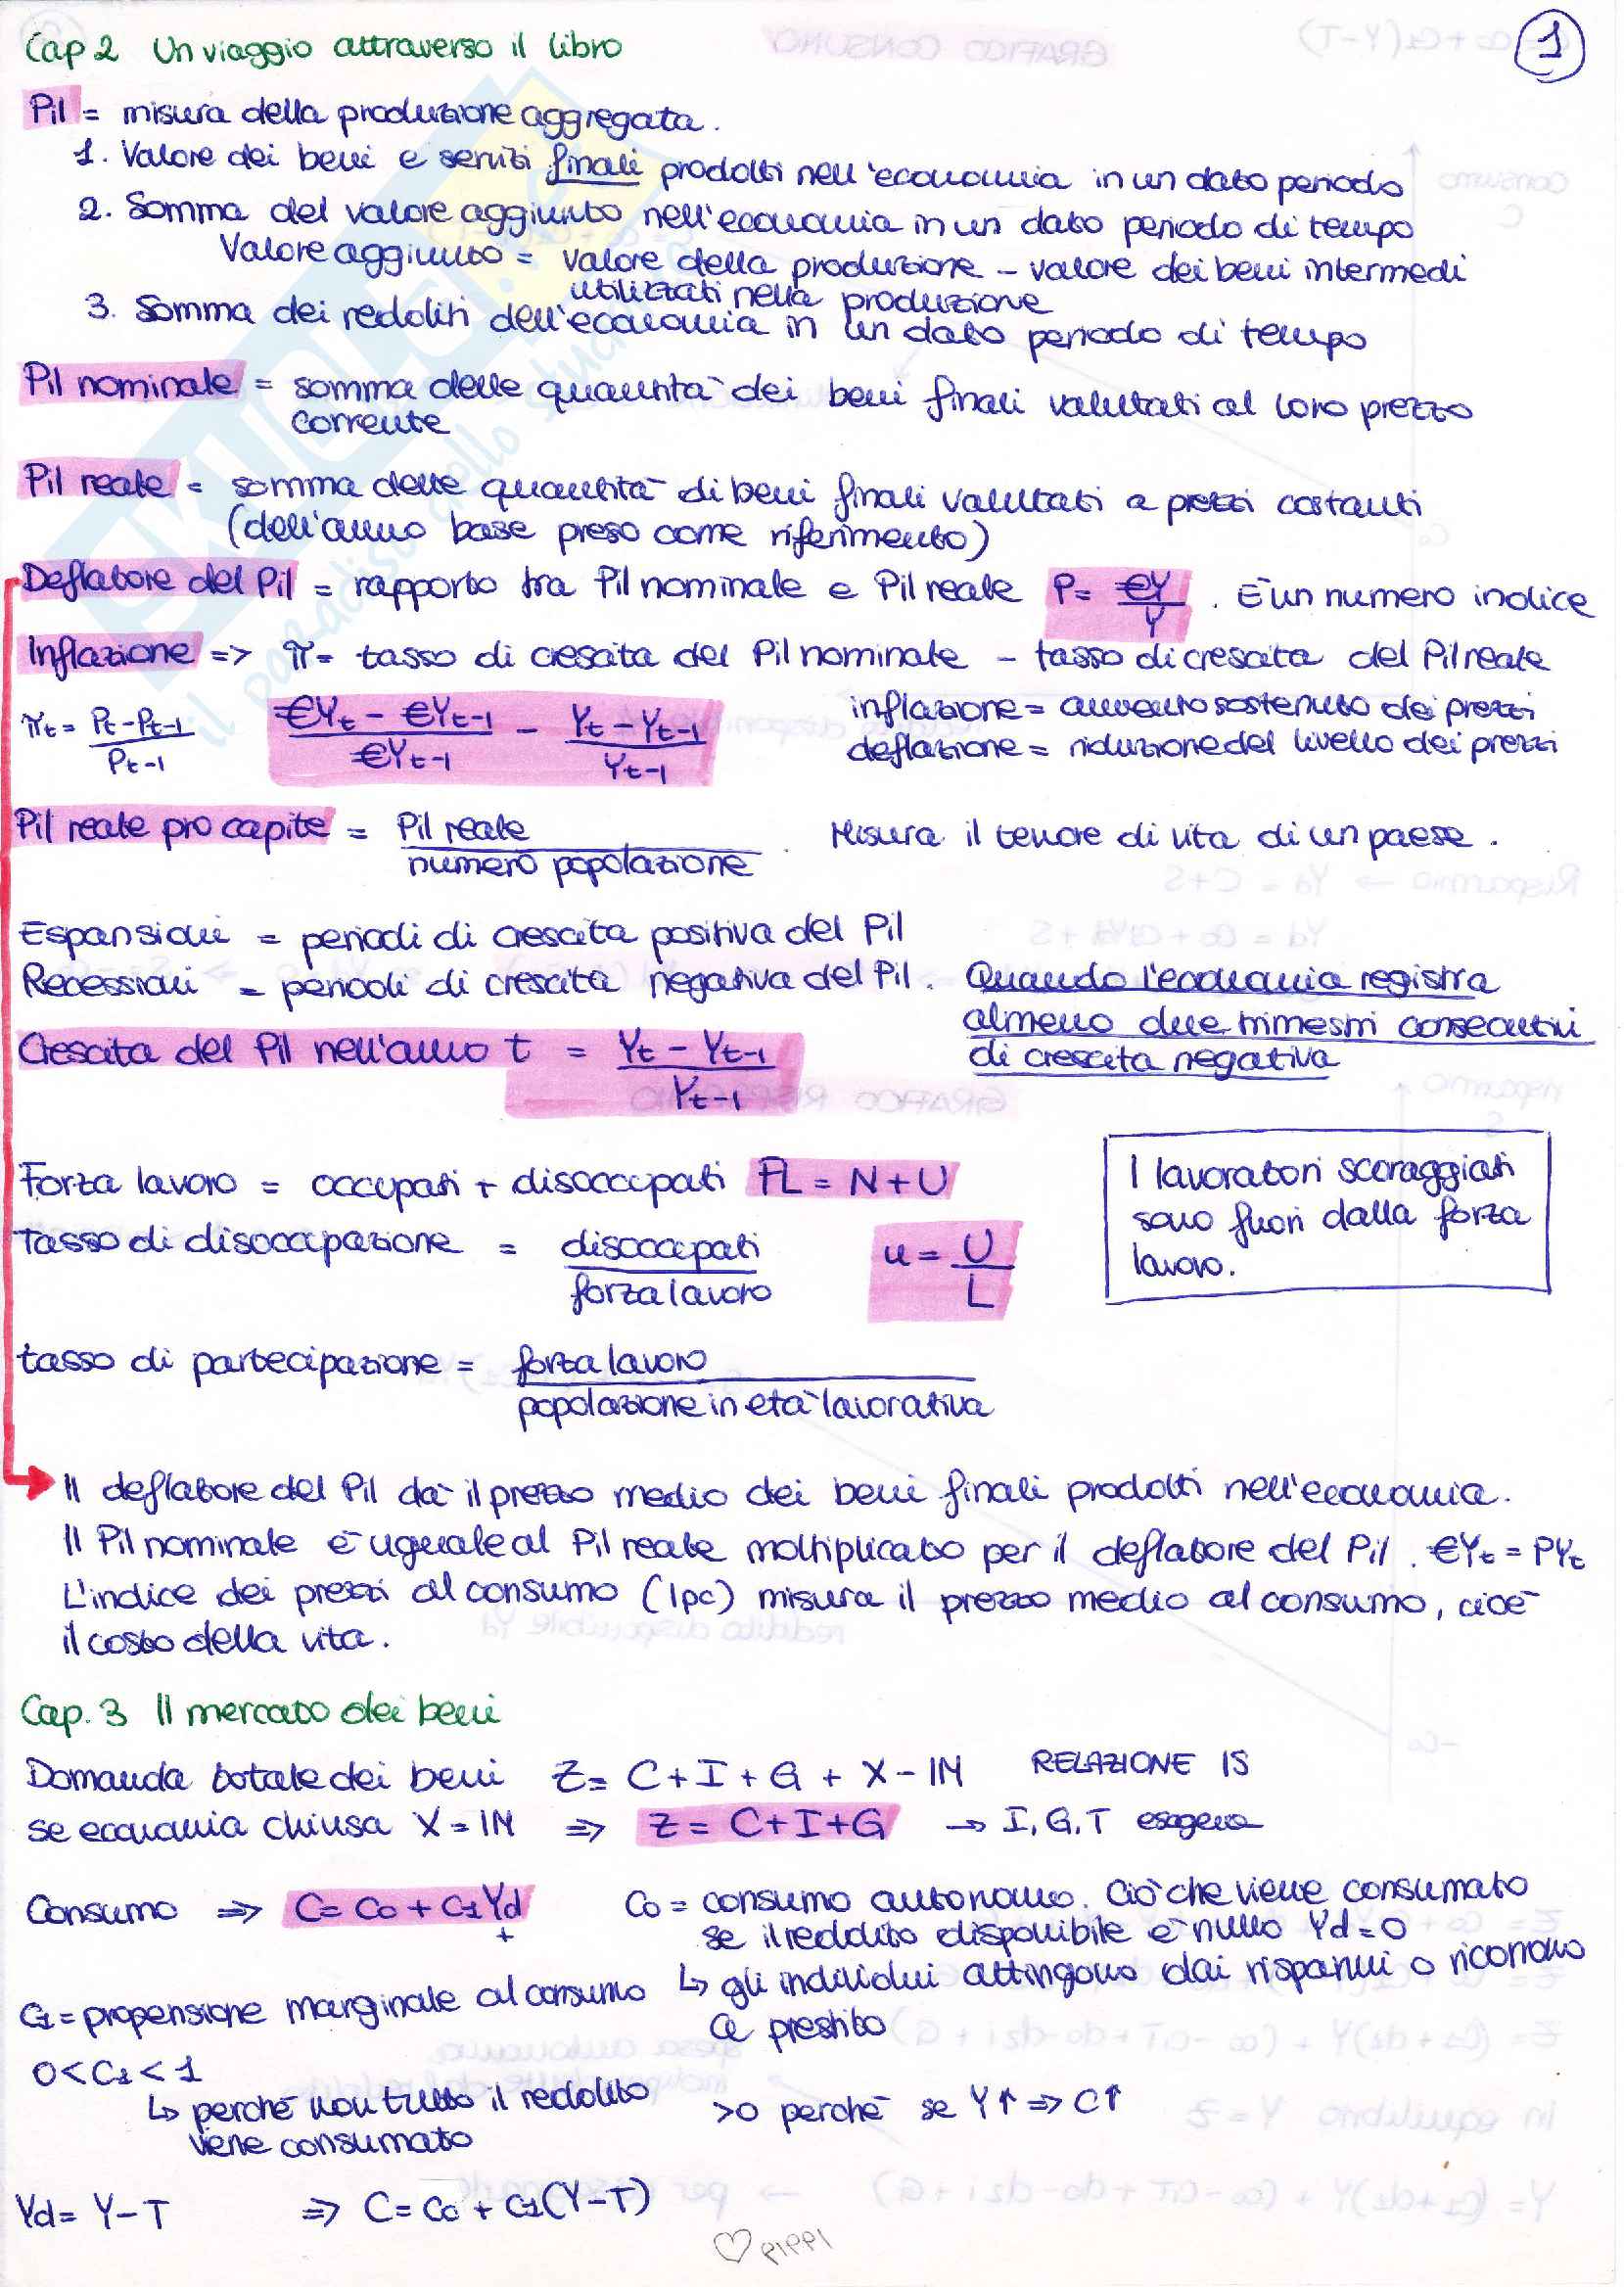 Cap 2 Un viaggio attraverso il libro
1
Pil = misura della produzione aggregata.
1. Valore dei beni e servizi finali prodotti nell'economia in un dato periodo
2. Somma del valore aggiunto nell'economia in un dato periodo di tempo
Valore aggiunto = valore della produzione - valore dei beni intermedi
utilizzati nella produzione
3. Somma dei redditi dell'economia in un dato periodo di tempo
Pil nominale = somma delle quantità dei beni finali valutati al loro prezzo
corrente
Pil reale = somma delle quantità di beni finali valutati a prezzi costanti
(dell'anno base preso come riferimento)
Deflatore del Pil = rapporto tra Pil nominale e Pil reale P = €Y / Y . È un numero indice
Inflazione => π = tasso di crescita del Pil nominale - tasso di crescita del Pil reale
πt = Pt - Pt-1 / Pt-1 €Yt - €Yt-1 / €Yt-1 - Yt - Yt-1 / Yt-1
inflazione = aumento sostenuto dei prezzi
deflazione = riduzione del livello dei prezzi
Pil reale pro capite = Pil reale / numero popolazione . Misura il tenore di vita di un paese.
Espansioni = periodi di crescita positiva del Pil
Recessioni = periodi di crescita negativa del Pil. Quando l'economia registra
almeno due trimestri consecutivi
di crescita negativa
Crescita del Pil nell'anno t = Yt - Yt-1 / Yt-1
Forza lavoro = occupati + disoccupati FL = N + U
Tasso di disoccupazione = disoccupati / forza lavoro u = U / L
I lavoratori scoraggiati
sono fuori dalla forza
lavoro.
tasso di partecipazione = forza lavoro / popolazione in età lavorativa
Il deflatore del Pil dà il prezzo medio dei beni finali prodotti nell'economia.
Il Pil nominale è uguale al Pil reale moltiplicato per il deflatore del Pil. €Yt = PYt
L'indice dei prezzi al consumo (Ipc) misura il prezzo medio al consumo, cioè
il costo della vita.
Cap. 3 Il mercato dei beni
Domanda totale dei beni Z = C + I + G + X - IM RELAZIONE IS
se economia chiusa X = IM => Z = C + I + G → I, G, T esogene
Consumo => C = C0 + C1Yd
+
C0 = consumo autonomo. Ciò che viene consumato
se il reddito disponibile è nullo Yd = 0
↳ gli individui attingono dai risparmi o ricorrono
a prestito
C1 = propensione marginale al consumo
0 < C1 < 1
↳ perché non tutto il reddito
viene consumato
>0 perché se Y↑ => C↑
Yd = Y - T => C = C0 + C1(Y - T)
♡ PIPPI
SKUOLA
il paradiso dello studente